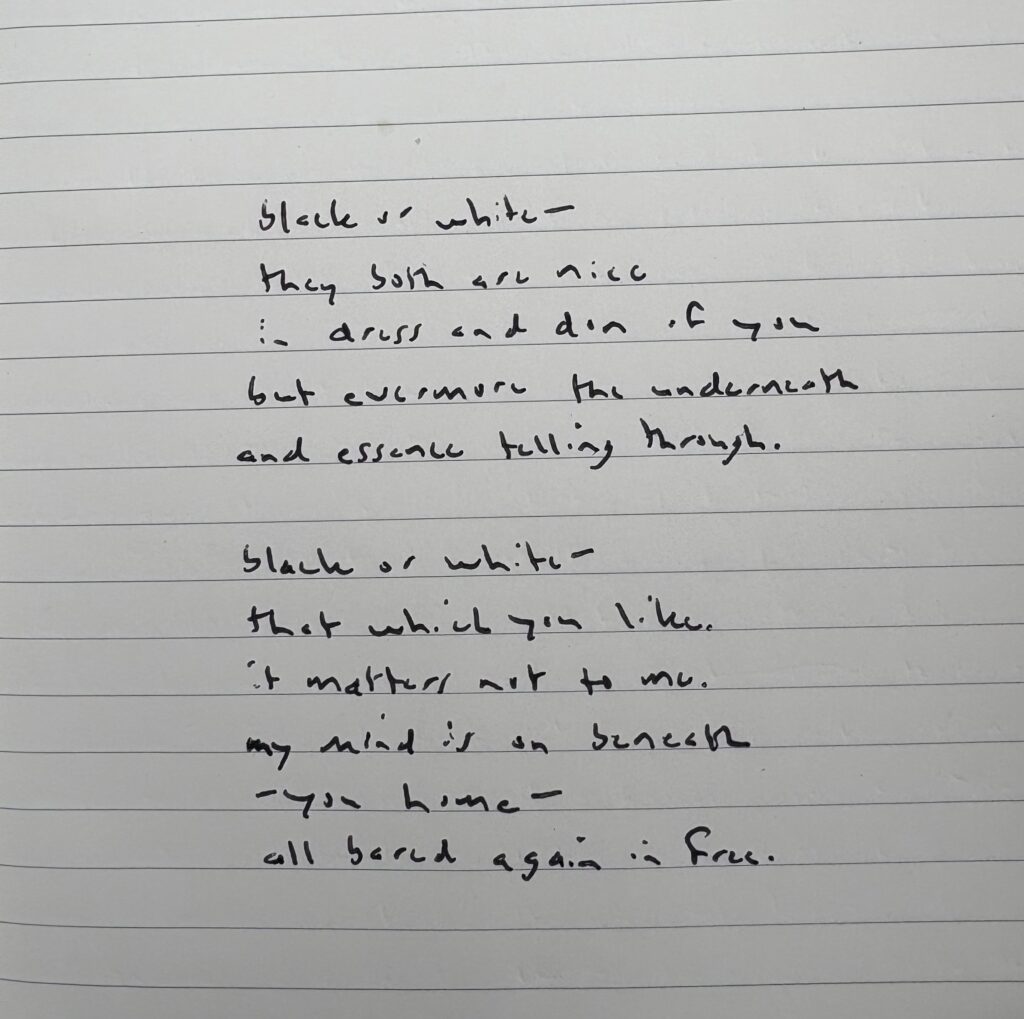 black or white—
they both are nice
in dress and don of you
but evermore the underneath
and essence telling through.
black or white—
that which you like.
it matters not to me.
my mind is on beneath
—you home—
all bared again in free.